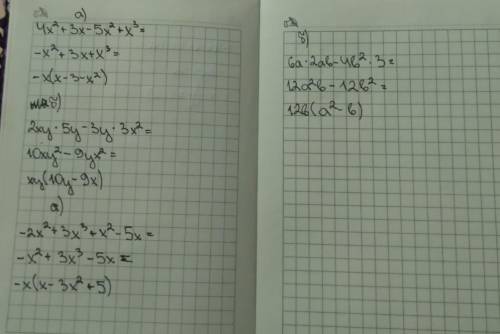 а)
4x² + 3x - 5x² + x³ =
-x² + 3x + x³ =
-x(x - 3 - x²)
б)
2xy · 5y - 3y · 3x² =
10xy² - 9yx² =
xy(10y - 9x)
а)
-2x² + 3x³ + x² - 5x =
-x² + 3x³ - 5x =
-x(x - 3x² + 5)
б)
6a · 2ab - 4b² · 3 =
12a²b - 12b² =
12b(a² - b)